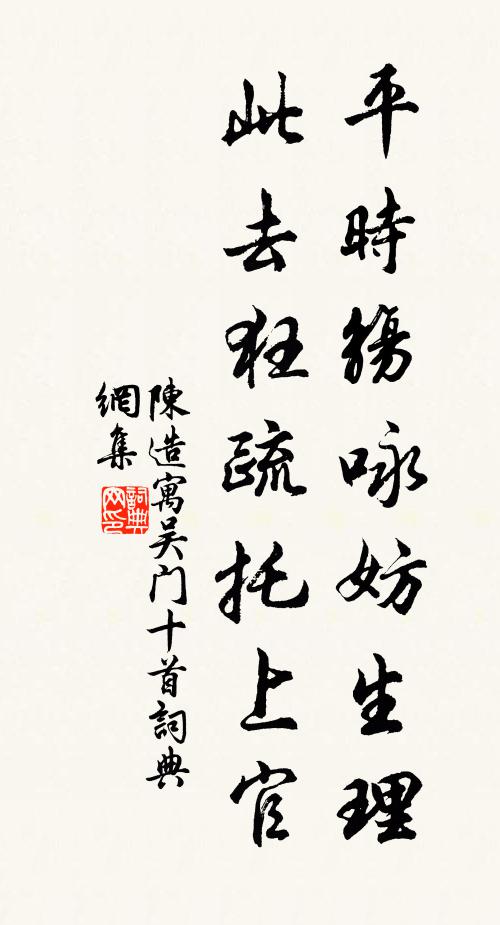 平時觴咏妨生理
此去狂疏托上官
陳造寓吴门十首詞典
網集
詞典网印